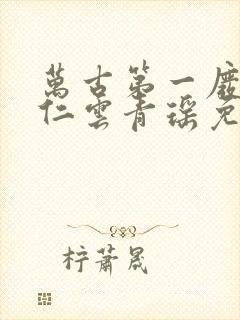 萬古第一廢
仁雲青瑤免
柠蕭晟